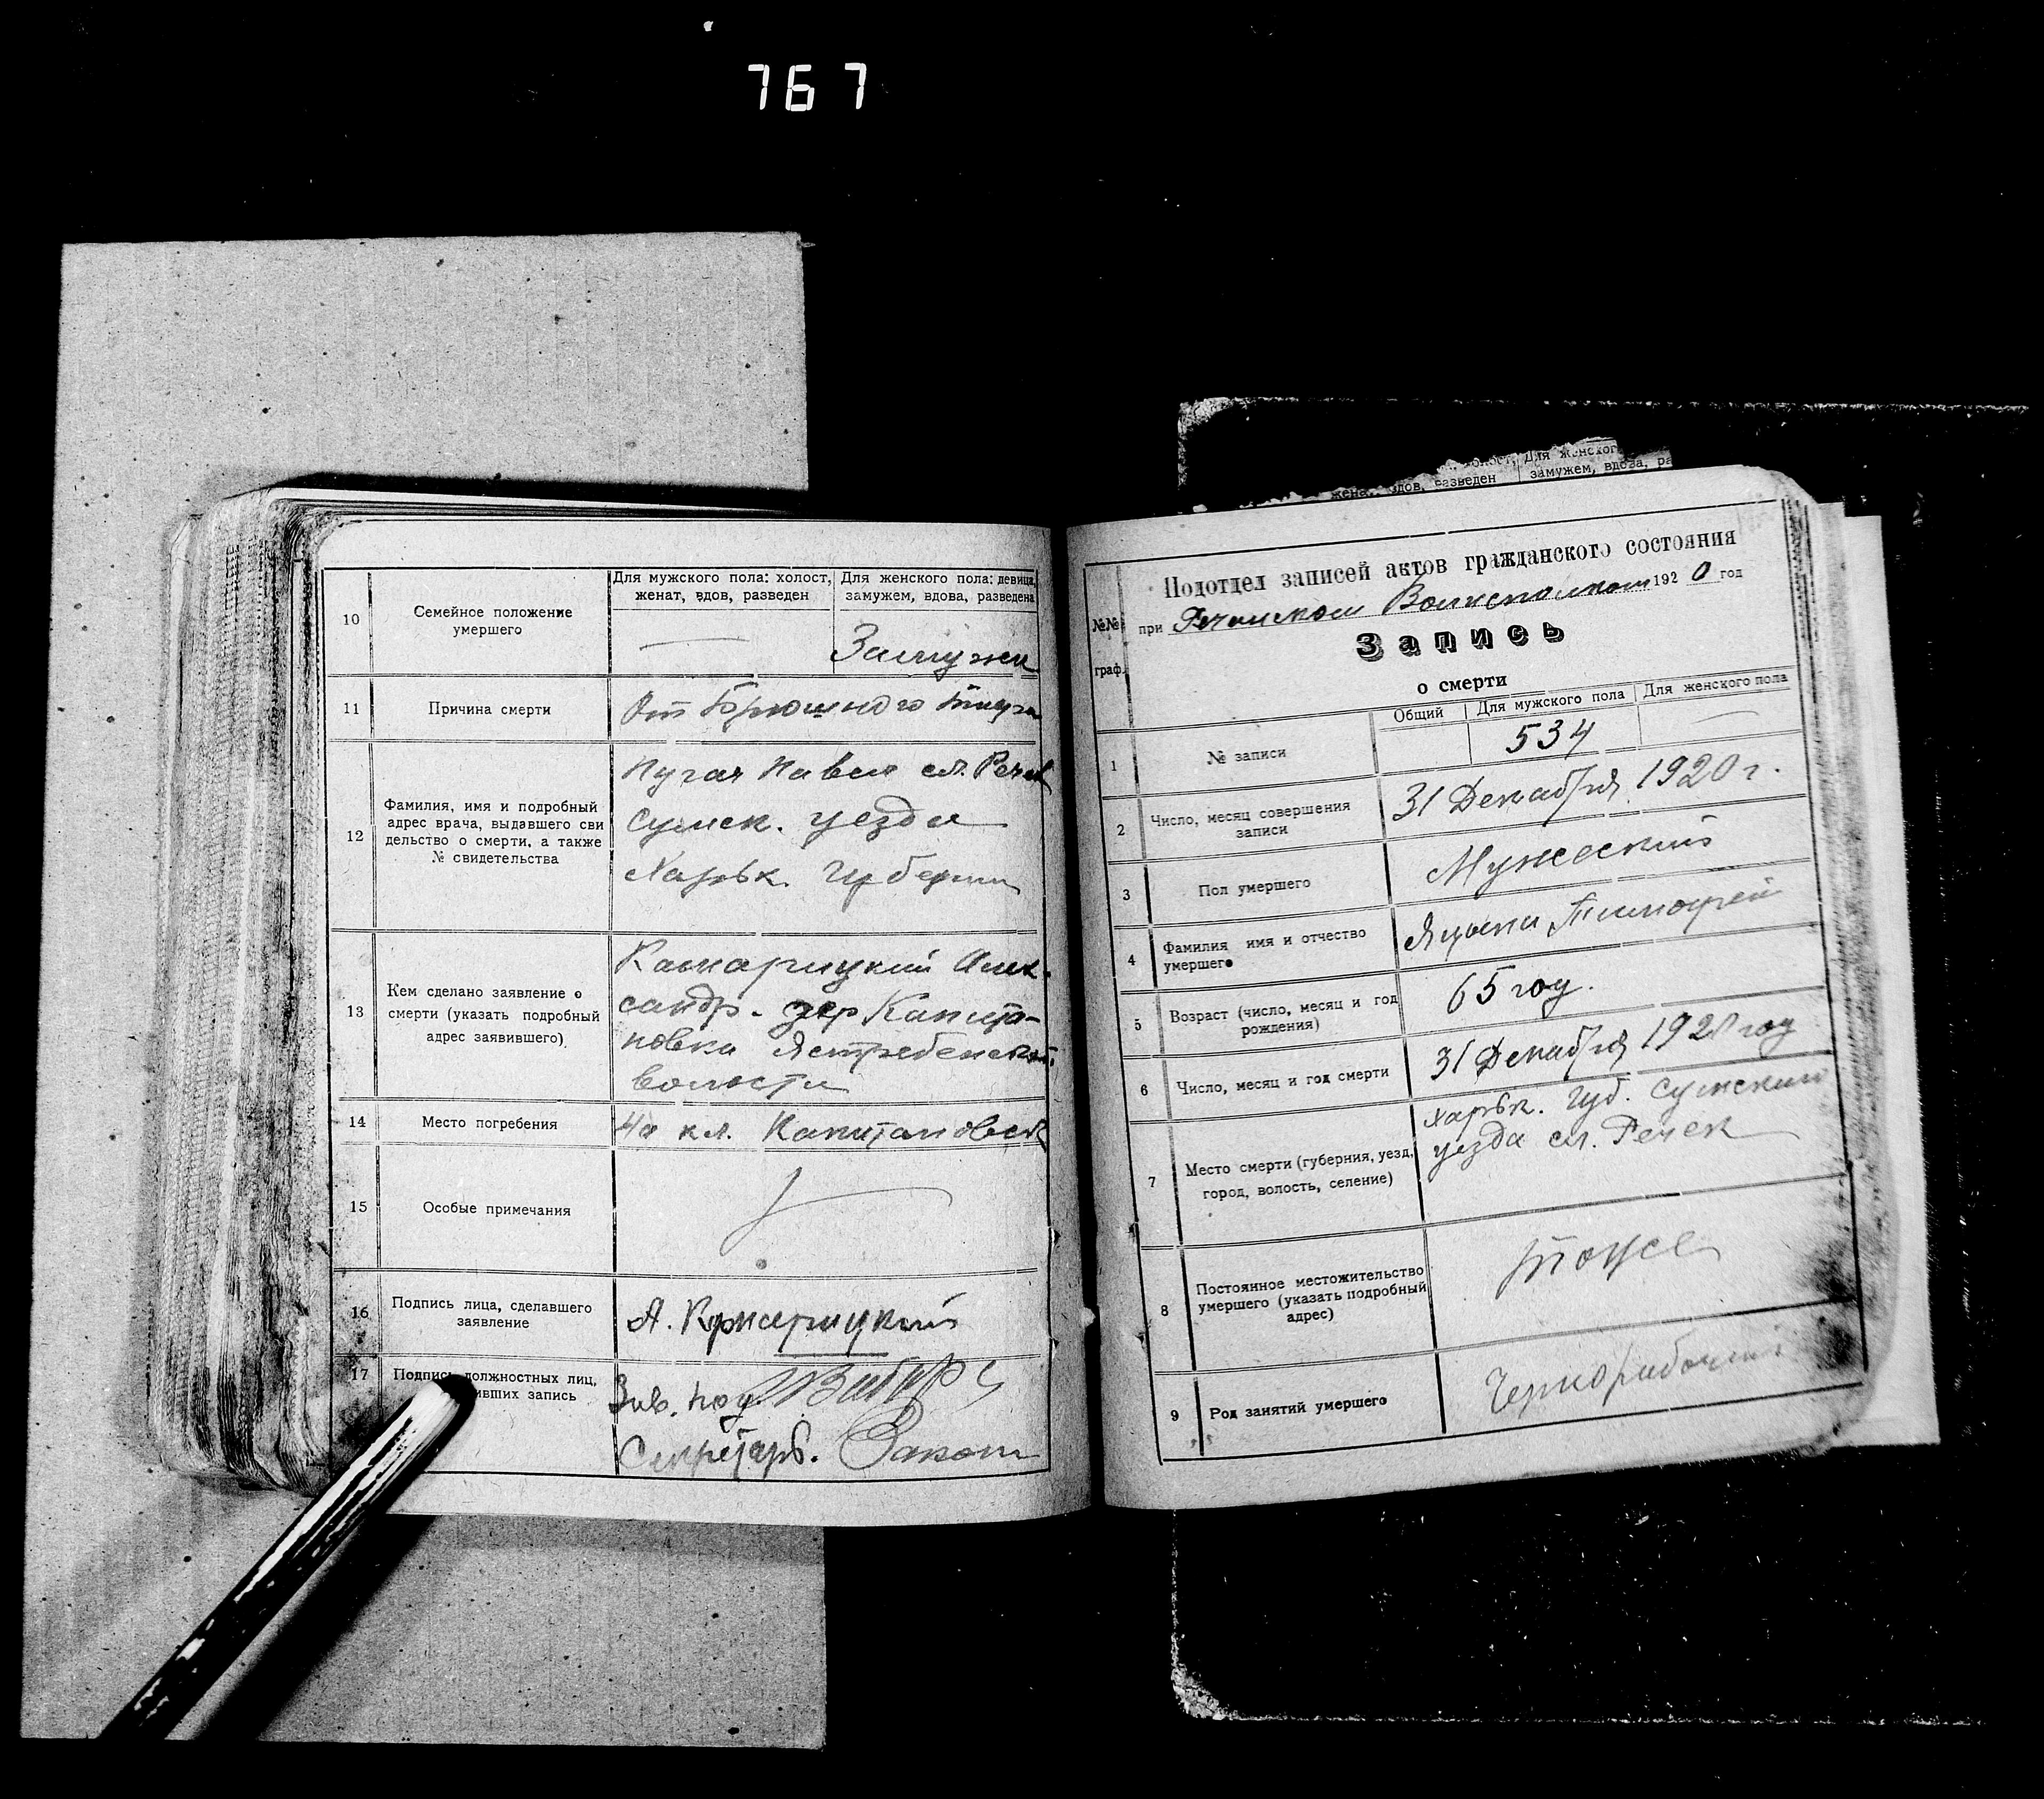 767
10
Семейное положение
умершего
Для мужского пола: холост,
женат, вдов, разведен
Для женского пола: девица,
замужем, вдова, разведена
Замужем
11
Причина смерти
От Брюшного тифа
12
Фамилия, имя и подробный
адрес врача, выдавшего сви
дельство о смерти, а также
№ свидетельства
Пугач Павел сл. Речек
Сумск. уезда
Харьк. Губернии
13
Кем сделано заявление о
смерти (указать подробный
адрес заявившего)
Камарицкий Алек-
сандр. дер Капита-
новка Ястребенской
волости
14
Место погребения
На кл. Капитановск
15
Особые примечания
16
Подпись лица, сделавшего
заявление
А. Камарицкий
17
Подпись должностных лиц,
ивших запись
Зав. под
Секретарь.
жена, вдов, разведен
холост, Для женског
замужем, вдова, ра
№№
граф.
Подотдел записей актов гражданского состояния
при Речанском Волисполкоме 1920 год
Запись
о смерти
1
№ записи
Общий
Для мужского пола
Для женского пола
534
2
Число, месяц совершения
записи
31 Декабря 1920 г.
3
Пол умершего
Мужеский
4
Фамилия имя и отчество
умершего
Тимофей
5
Возраст (число, месяц и год
рождения)
65 год.
6
Число, месяц и год смерти
31 Декабря 1920 году
7
Место смерти (губерния, уезд,
город, волость, селение)
Харьк. губ. Сумского
уезда сл. Речек
8
Постоянное местожительство
умершего (указать подробный
адрес)
тоже
9
Род занятий умершего
Чернорабочий